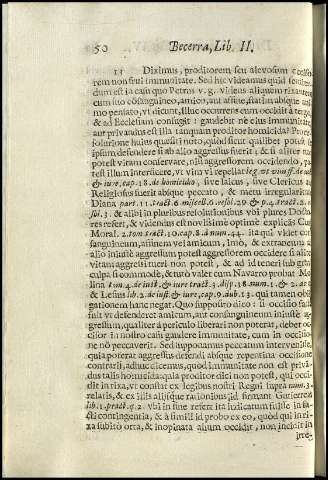 50 Becerra, Lib. II.
13 Diximus, proditorem seu alevosum occisorem
non frui immunitate. Sed hic videamus quid
dum est in casu quo Petrus v. g. videns alienum rixantem
cum suo cõsanguineo, amico, aut affine, statim absque
mo pensato, vt dicunt, illuc occurrens eum occidit à
& ad Ecclesiam confugit: gaudebit ne eius immunitate
aut privandus est illa tanquam proditor homicida? Pro
solutione huius quæsiti noto, quòd sicut quilibet potest se
ipsum defendere si ab alio aggressus fuerit, & si aliter non
potest vitam conservare, nisi aggressorem occidendo,
test illum interficere, vt vim vi repellat leg. vt vim ff. de
& iure, cap. 18. de homicidio, sive laicus, sive Clericus
Religiosus fuerit absque peccato, & metu irregularitatis
Diana part. 11. tract. 6. miscell. 6. resol. 29. & p. 4. tract. 2.
sol. 3. & alibi in pluribus resolutionibus vbi plures Docto-
res refert, & videndus est novissimè optimè explicãs
Moral. 2. tom. tract. 30. cap. 8. à num. 44. ita qui videt con-
sanguineum, affinem vel amicum, imò, & extraneum ab
alio iniustè aggressum potest aggressorem occidere si aliter
vitam aggressi tueri non potest, & ad id teneri sub gravi
culpa si commodè, & tutò valet cum Navarro probat Mo-
lina tom. 4. de iust. & iure tract. 3. disp. 18. num. 1. & 2.
& Lesius lib. 2. de iust. & iure, cap. 9. dub. 13. qui tamen obli-
gationem hanc negat. Quo supposito dico: si occisio facta
fuit vt defenderet amicum, aut consanguineum iniustè ag-
gressum, qualiter à periculo liberari non poterat, debet oc-
cisor in nostro casu gaudere immunitate, cum in occisio-
ne nõ peccaverit. Sed si ponamus peccatum intervenisse,
quia poterat aggressus defendi absque repentina occisione
contrarij, adhuc dicemus, quòd immunitate non est priva-
dus talis homicida: quia proditor dici non potest, qui occi-
dit in rixa, vt constat ex legibus nostri Regni supra num. 3.
relatis, & ex illis alijsque rationibus id firmant Gutierrez
lib. 1. pract. q. 2. vbi in fine refert ita iudicatum fuisse in fa-
cti contingentia, & à simili id probo ex eo, quòd qui in ri-
xa subitò orta, & inopinata alium occidit, non incidit in
irre-